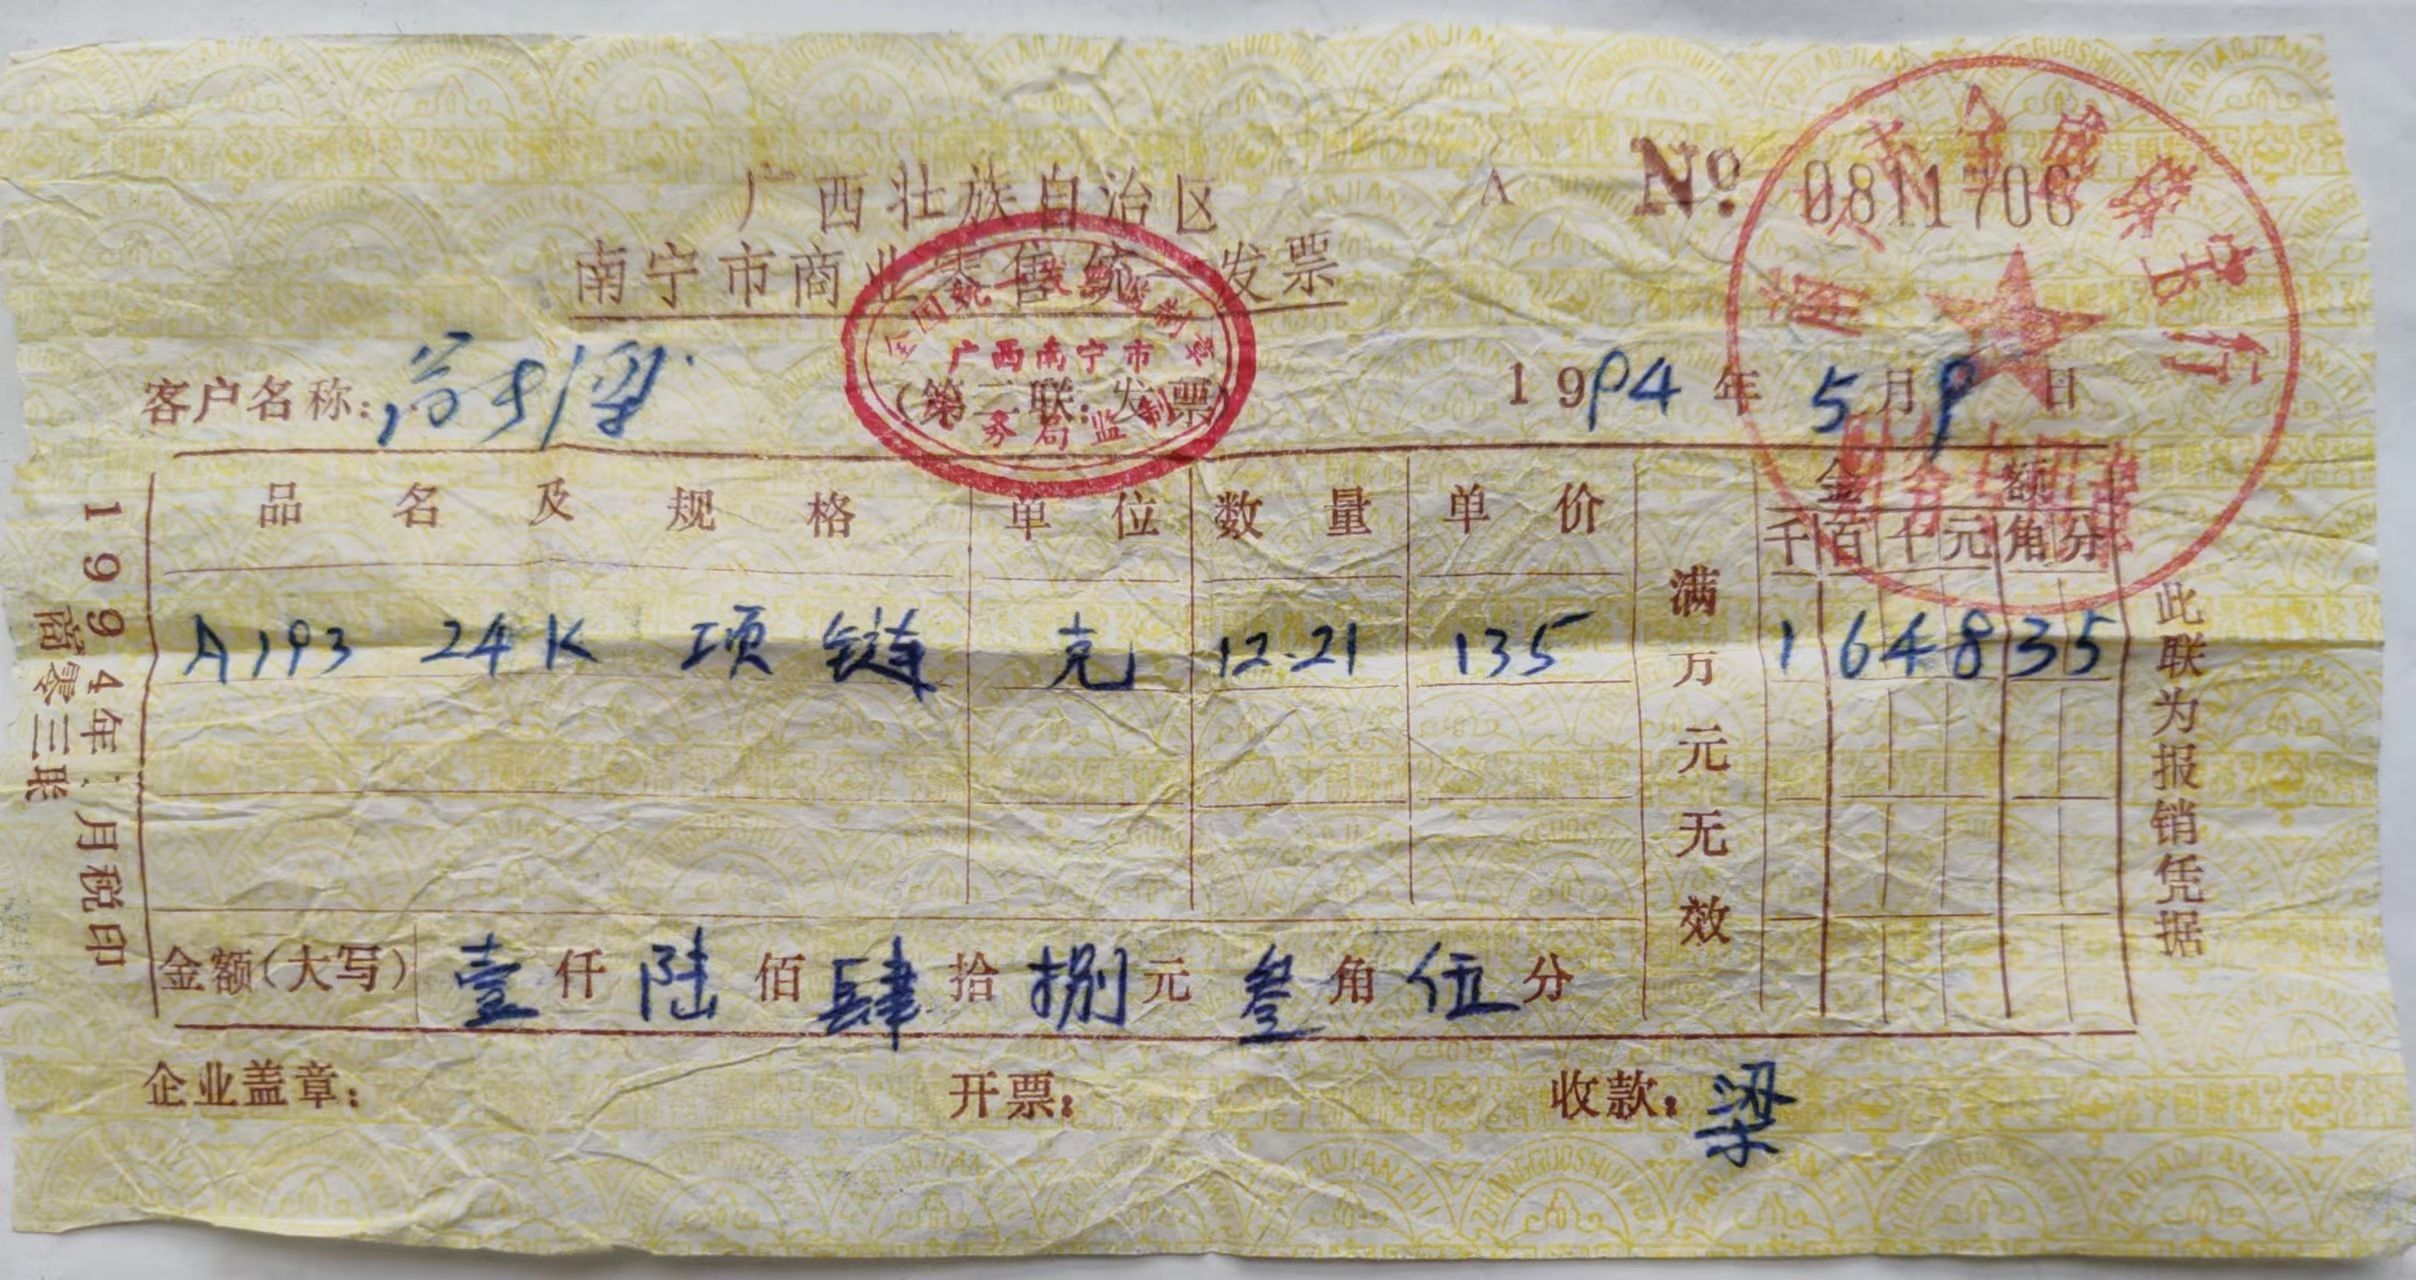 广西壮族自治区
A № 0811706
南宁市商业零售统一发票
全国统一发票监制章
广西南宁市
税务局监制
(第二联：发票)
客户名称：
1994年5月9日
品名及规格 单位 数量 单价 满万元无效 金额
千百十元角分
A193 24K 项链 克 12.21 135 1 6 4 8 3 5
金额(大写) 壹仟陆佰肆拾捌元叁角伍分
企业盖章： 开票： 收款：梁
此联为报销凭据
1994年：月税印
商零三联
财务专用章